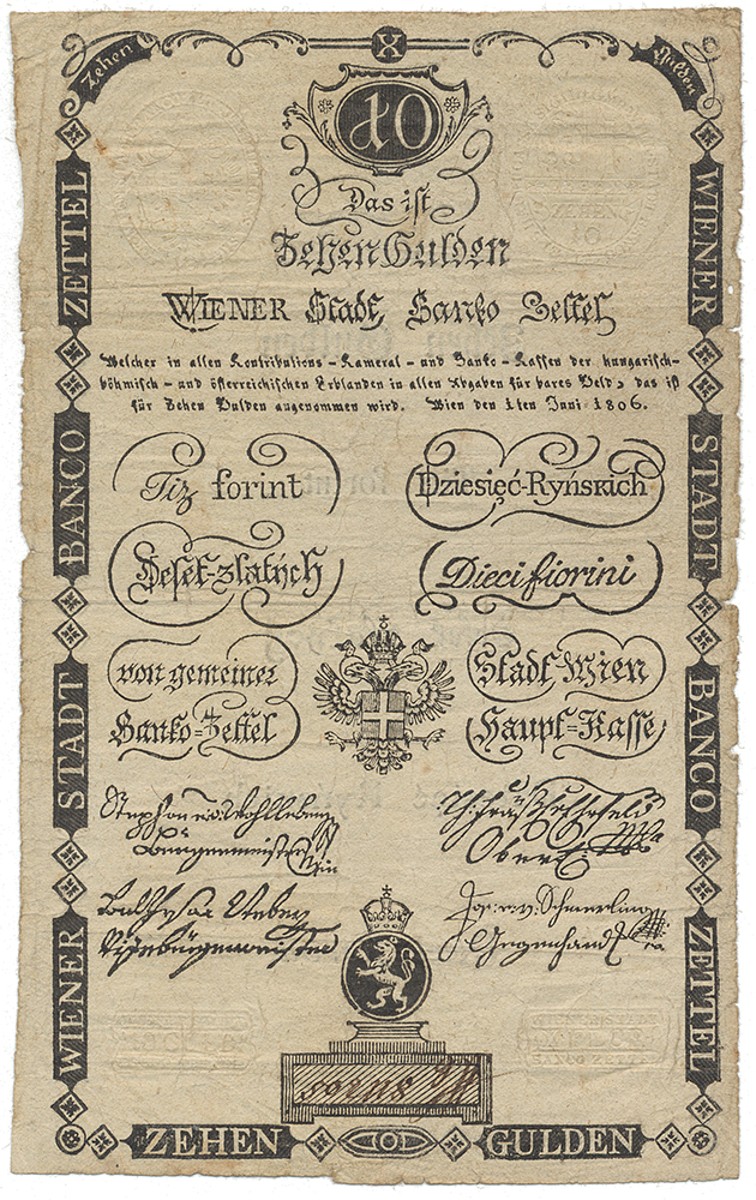 Zehen
X
Gulden
10
Das ist
Zehen Gulden
WIENER Stadt Banko Zettel
Welcher in allen Kontributions-Kameral-und Banko-Kassen der hungarisch-
böhmisch-und österreichischen Erblanden in allen Abgaben für bares Geld, das ist
für Zehen Gulden angenommen wird. Wien den 1ten Juni 1806.
Tiz forint
Dziesięć-Ryńskich
Deset-zlatých
Dieci fiorini
von gemeiner
Stadt Wien
Banko=Zettel
Haupt=Kasse
Stephan
Burgermeister
Ober
Vizebürgermeister
Jos: v: Schmerling
Gegenhandl
WIENER STADT BANCO ZETTEL
WIENER STADT BANCO ZETTEL
ZEHEN GULDEN
ZEHEN
10